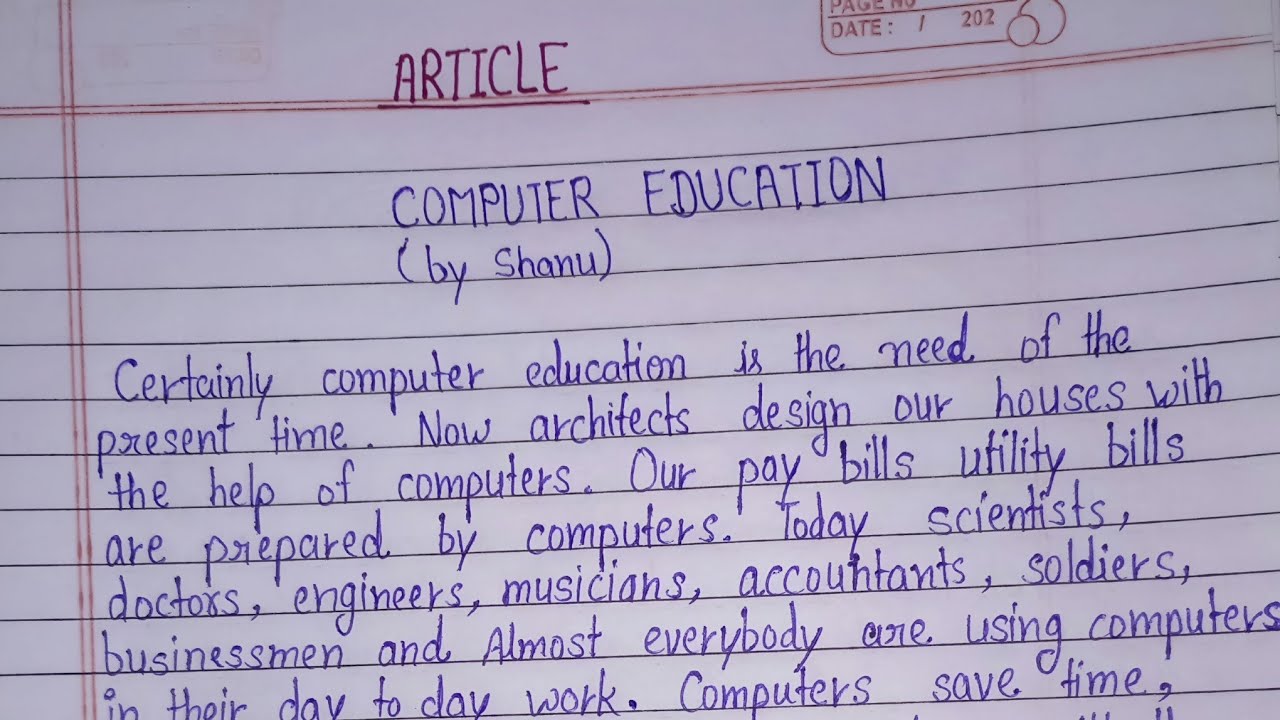 PAGE NO
DATE: / 202
ARTICLE
COMPUTER EDUCATION
(by Shanu)
Certainly computer education is the need of the
present time. Now architects design our houses with
the help of computers. Our pay bills utility bills
are prepared by computers. Today scientists,
doctors, engineers, musicians, accountants, soldiers,
businessmen and Almost everybody are using computers
in their day to day work. Computers save time,